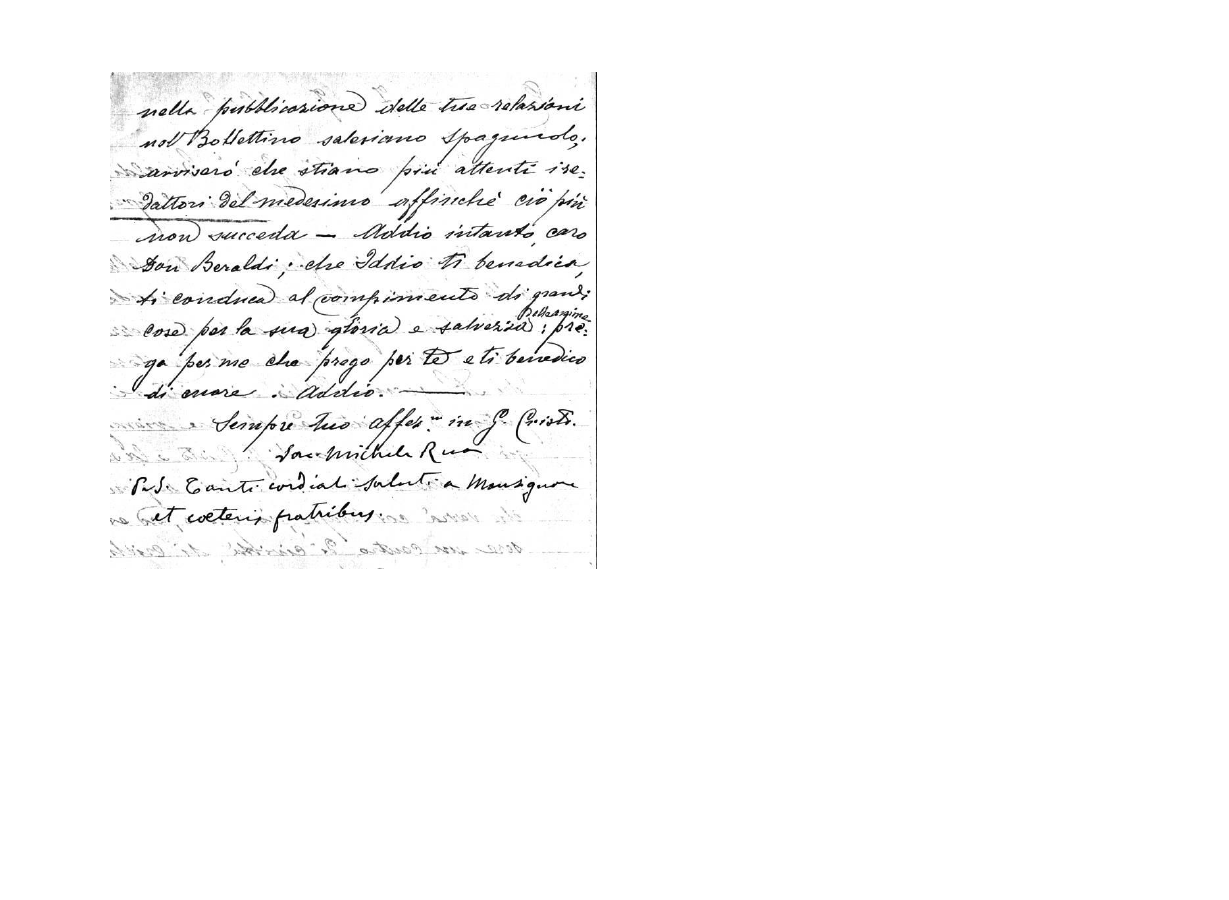 nella pubblicazione delle tue relazioni
nel Bollettino salesiano spagnuolo,
avviserò che stiano più attenti i re-
dattori del medesimo affinchè ciò più
non succeda — Addio intanto, caro
Don Beraldi; che Iddio ti benedica,
ti conduca al compimento di grandi
cose per la sua gloria e salvezza ; pre-
ga per me che prego per te e ti benedico
di cuore. Addio. —
Sempre tuo affes.mo in G. Cristo.
Sac. Michele Rua
P.S. Tanti cordiali saluti a Monsignore
et coeteris fratribus.